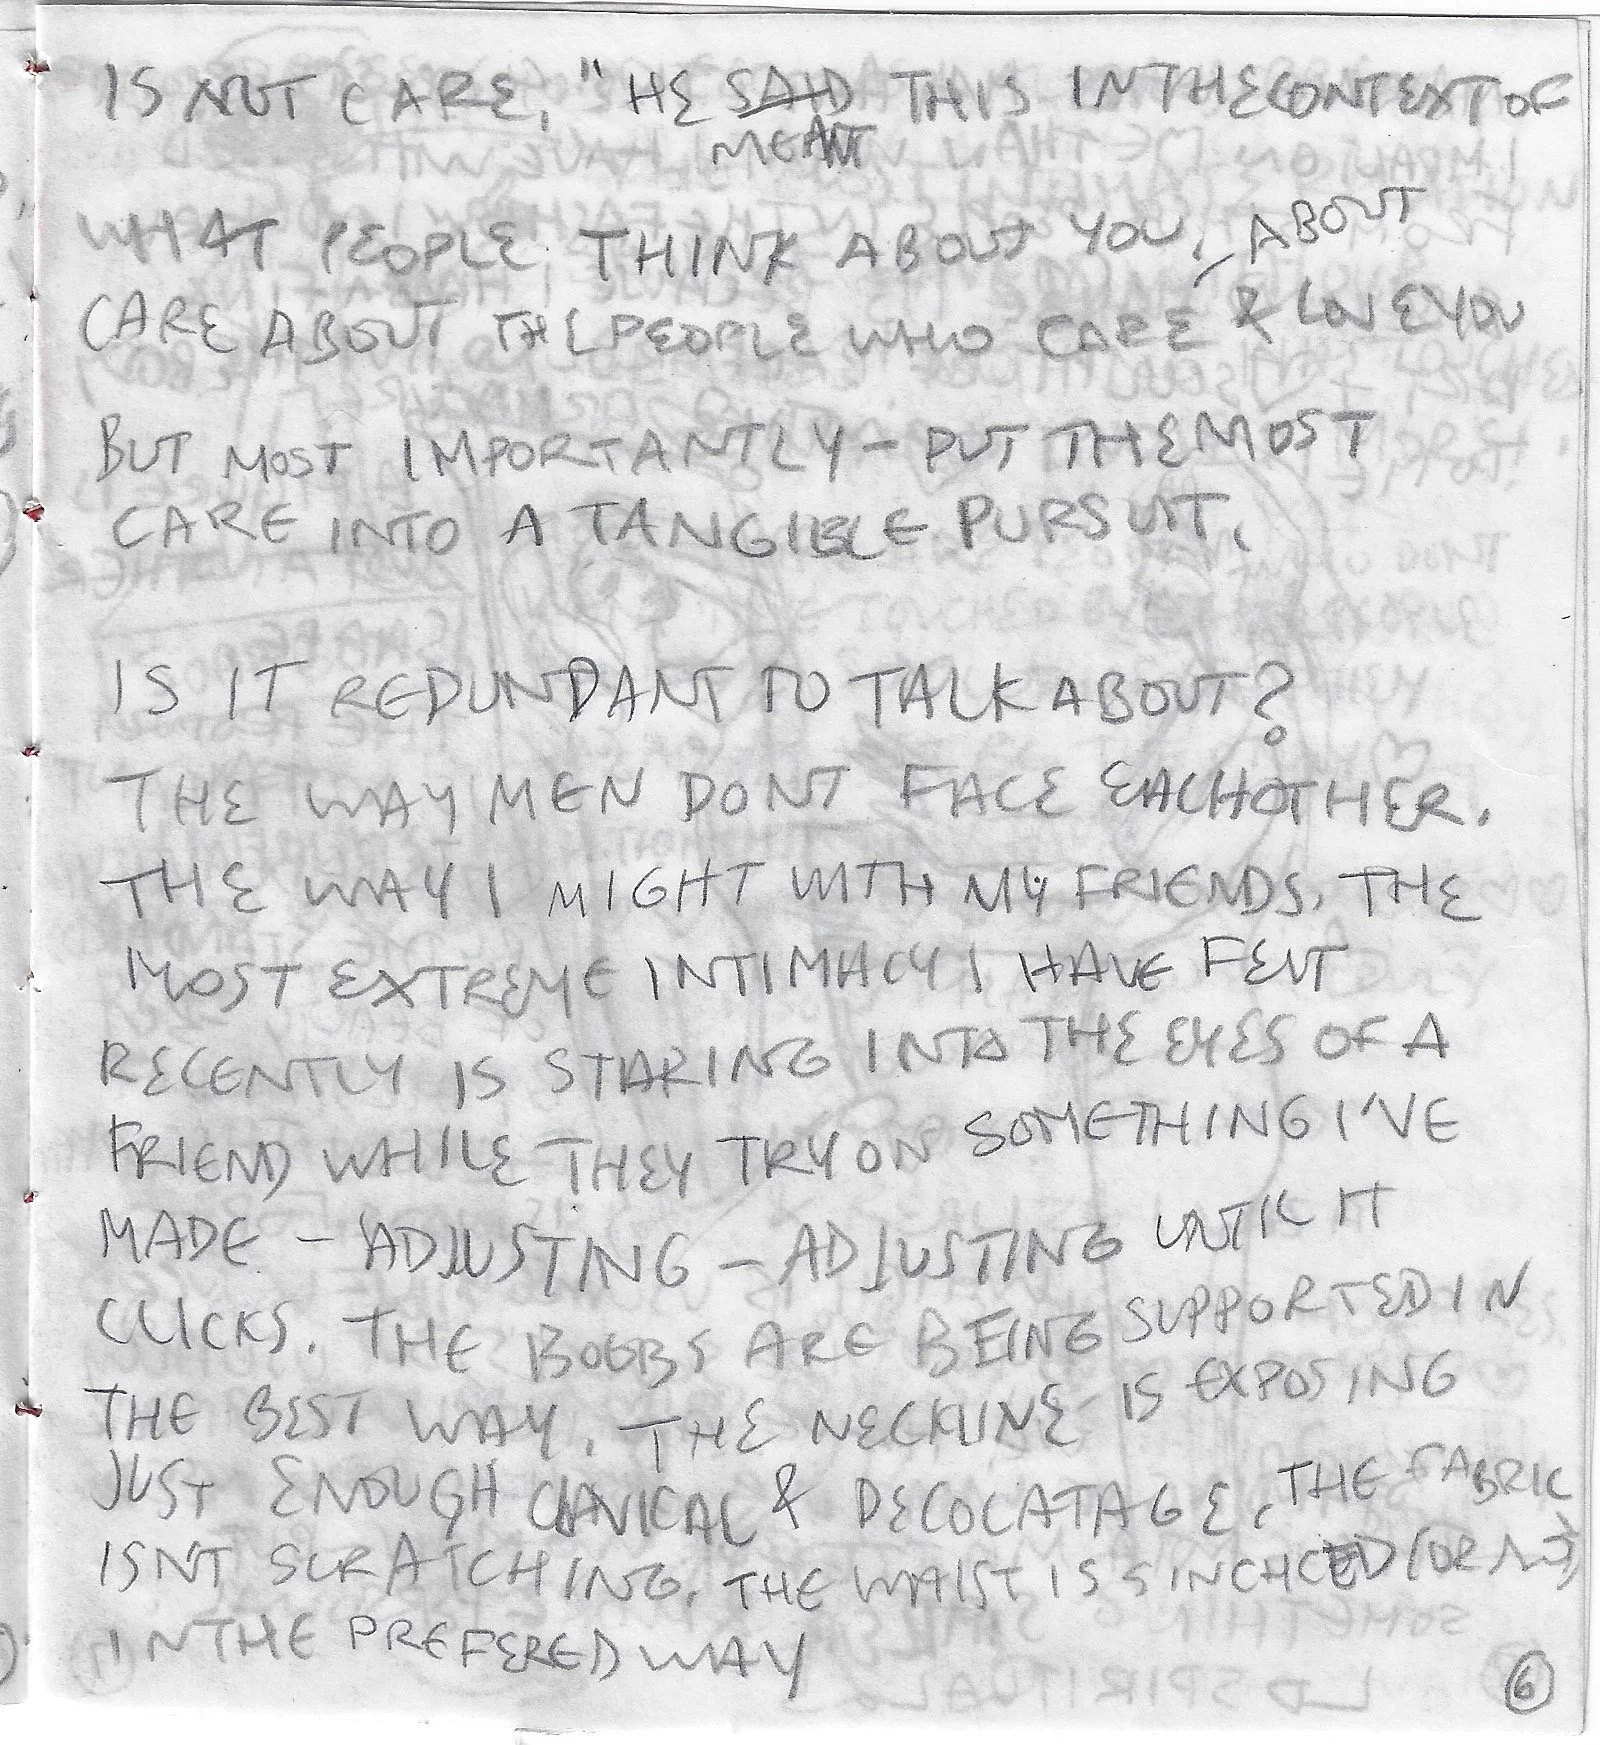 IS NOT CARE, " HE SAID THIS IN THE CONTEXT OF
MEANT
WHAT PEOPLE THINK ABOUT YOU, ABOUT
CARE ABOUT THE PEOPLE WHO CARE & LOVE YOU
BUT MOST IMPORTANTLY - PUT THE MOST
CARE INTO A TANGIBLE PURSUIT.
IS IT REDUNDANT TO TALK ABOUT?
THE WAY MEN DONT FACE EACHOTHER.
THE WAY I MIGHT WITH MY FRIENDS. THE
MOST EXTREME INTIMACY I HAVE FELT
RECENTLY IS STARING INTO THE EYES OF A
FRIEND WHILE THEY TRY ON SOMETHING I'VE
MADE - ADJUSTING - ADJUSTING UNTIL IT
CLICKS. THE BOOBS ARE BEING SUPPORTED IN
THE BEST WAY. THE NECKLINE IS EXPOSING
JUST ENOUGH CLAVICAL & DECOLATAGE, THE FABRIC
ISN'T SCRATCHING. THE WAIST IS SINCHCED (OR NOT)
IN THE PREFERED WAY
6